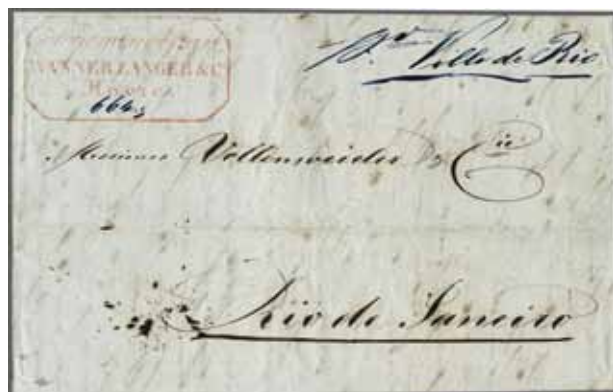 WANNER LANGER & Cº
664
pr Ville de Rio
Messieurs Vollenweider & Cie
Rio de Janeiro